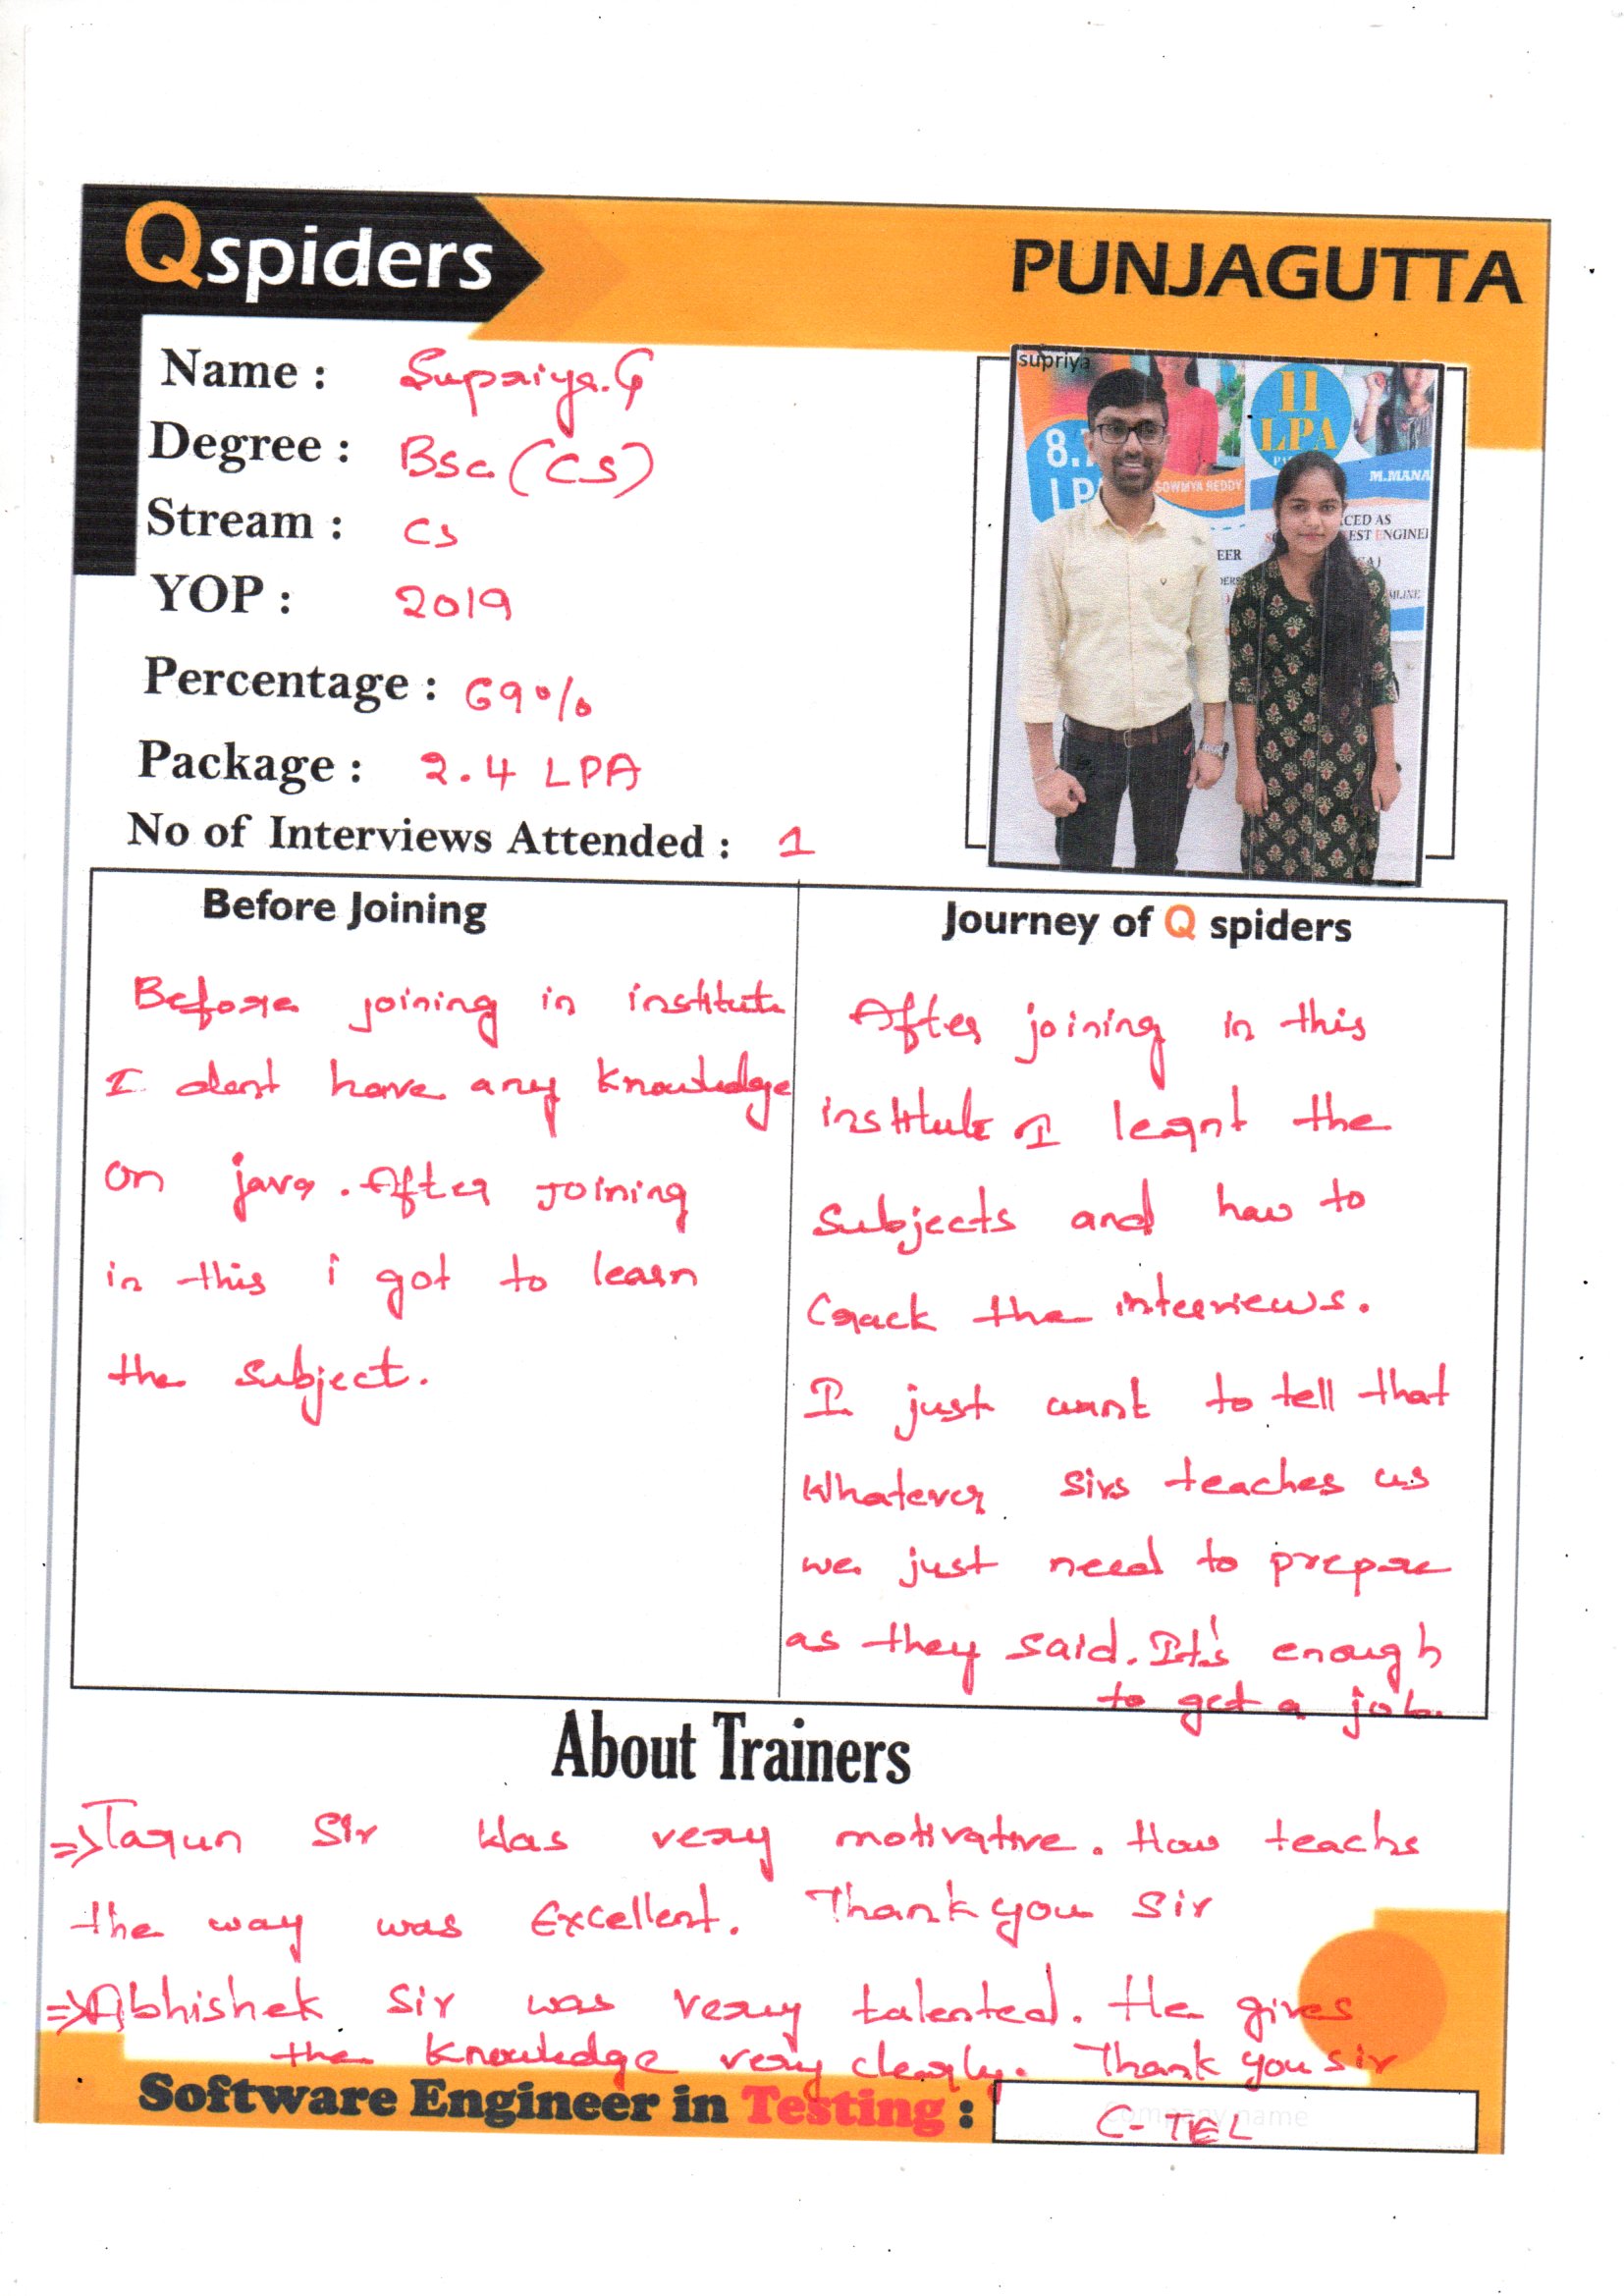 Qspiders
PUNJAGUTTA
Name : Supriya.G
Degree : Bsc (CS)
Stream : CS
YOP : 2019
Percentage : 69%
Package : 2.4 LPA
No of Interviews Attended : 1
supriya
8.
LPA
SOWMYA REDDY
11
LPA
M.MANA
CED AS
EST ENGINE
EER
Before Joining
Before joining in institute
I dont have any knowledge
on java. After Joining
in this i got to learn
the subject.
Journey of Q spiders
After joining in this
institute I learnt the
Subjects and how to
Crack the interviews.
I just want to tell that
Whatever sirs teaches us
we just need to prepare
as they said. It's enough
to get a job.
About Trainers
=> Tarun Sir Was very motivative. How teachs
the way was Excellent. Thank you Sir
=> Abhishek Sir was very talented. He gives
the knowledge very clearly. Thank you sir
Software Engineer in Testing :
Company name
C-TEL